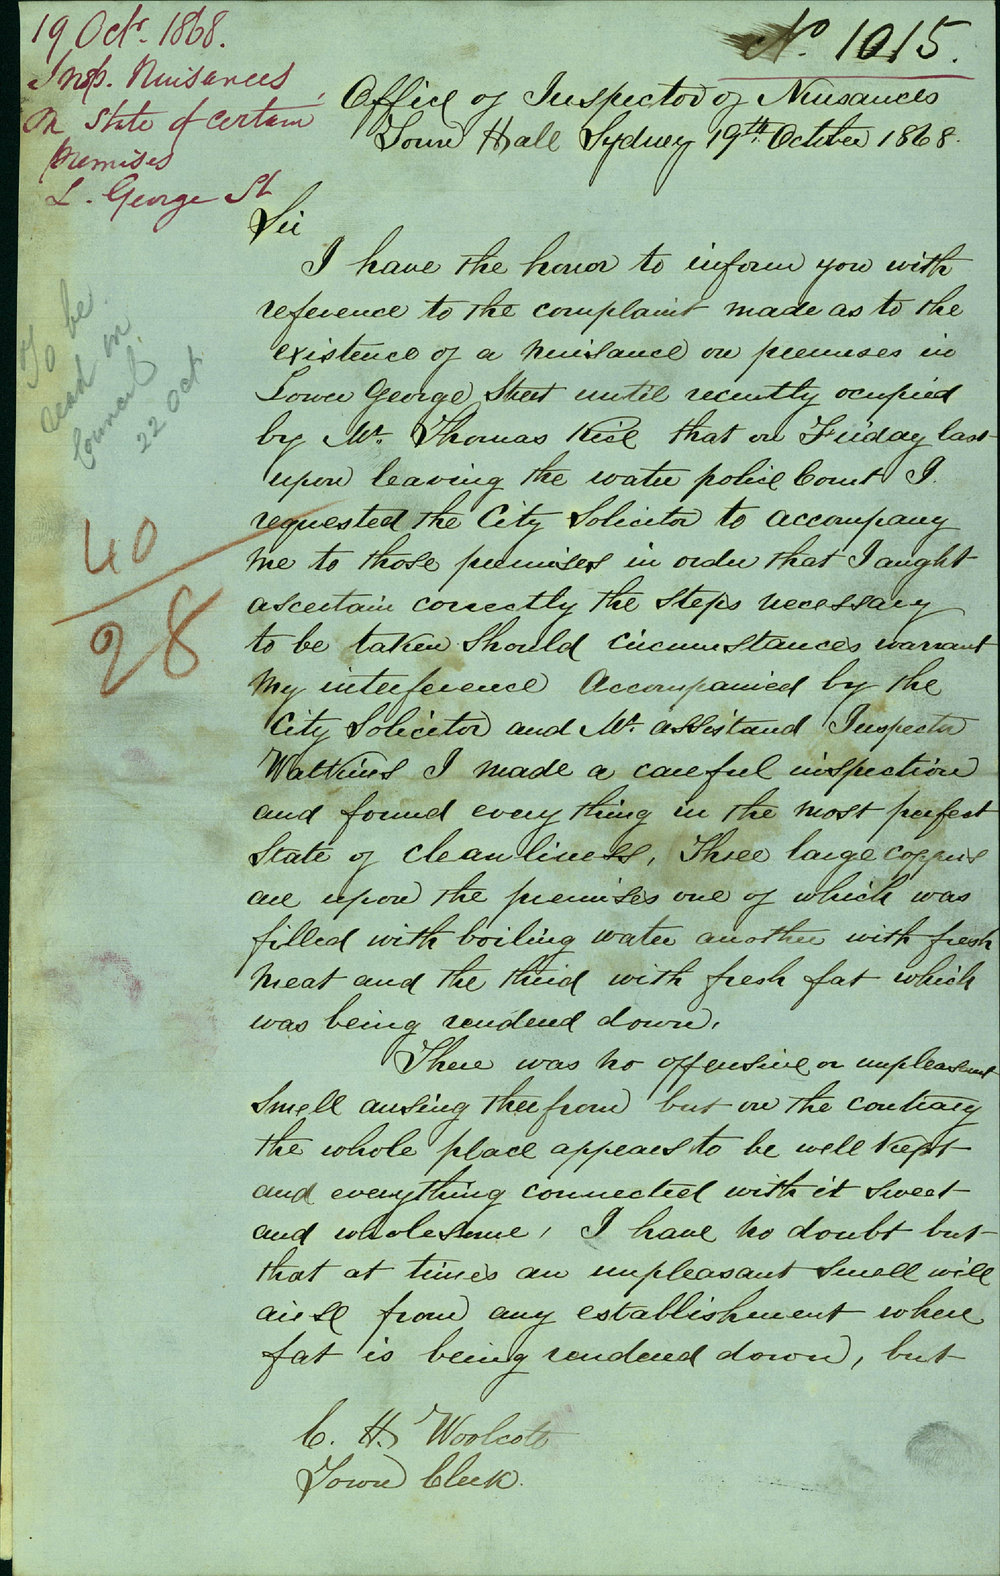 19 Octr. 1868.
Insp. Nuisances
On State of certain
premises
L. George St
No 1015.
Office of Inspector of Nuisances
Town Hall Sydney 19th October 1868.
Sir
I have the honor to inform you with
reference to the complaint made as to the
existence of a nuisance on premises in
Lower George Street until recently occupied
by Mr. Thomas that on Friday last
upon leaving the water police Court I
requested the City Solicitor to accompany
me to those premises in order that I might
ascertain correctly the steps necessary
to be taken should circumstances warrant
my interference Accompanied by the
City Solicitor and Mr. assistand Inspector
Watkins I made a careful inspection
and found every thing in the most perfect
State of cleanliness, Three large coppers
are upon the premises one of which was
filled with boiling water another with fresh
meat and the third with fresh fat which
was being rendered down.
There was no offensive or unpleasant
smell arising therefrom but on the contrary
the whole place appears to be well kept
and everything connected with it sweet
and wholesome, I have no doubt but
that at times an unpleasant smell will
arise from any establishment where
fat is being rendered down, but
C. H. Woolcott
Town Clerk.
To be
read in
Council
22 Oct
40
28